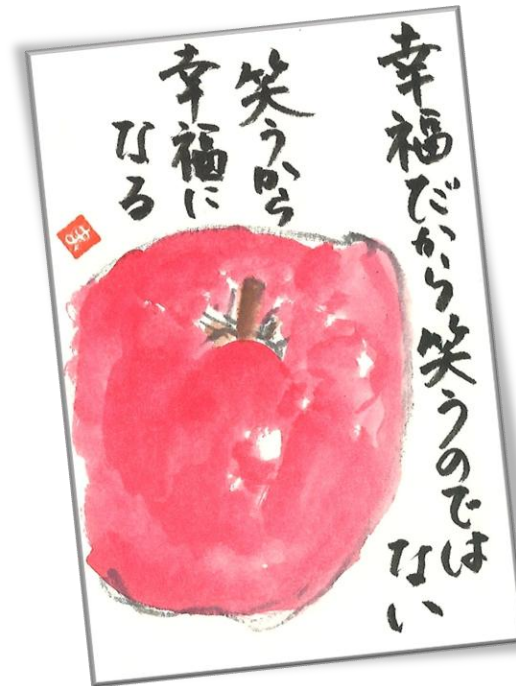 幸福だから笑うのでは
ない
笑うから
幸福に
なる